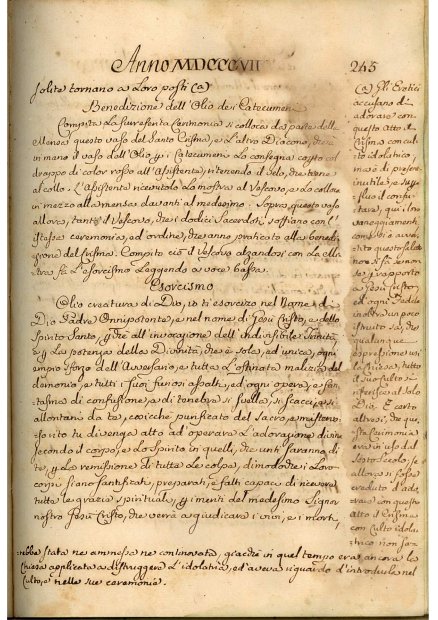 Anno MDCCCVII
245
solite tornano a Loro posti (a)
Benedizione dell'Olio dei Catecumeni
Compita La surreferita Cerimonia si colloca da parte della
Mensa questo vaso del Santo Crisma, e L'altro Diacono, che
in mano il vaso dall'Olio, pi i Catecumeni Lo consegna coperto col
drappo di color rosso all'Assistente, ritenendo il velo, che tiene
al collo. L'Assistente ricevutolo La mostra al Vescovo, e Lo colloca
in mezzo alla mensa davanti al medesimo. Sopra questo vaso
allora, tanto il Vescovo, che i dodici Sacerdoti soffiano con l'
istessa ceremonia, ed ordine, che anno praticato alla benedi-
zione del Crisma. Compito ciò il Vescovo alzandosi con La Mi-
tra fà L'esorcismo Leggendo a voce bassa.
Esorcismo
Olio creatura di Dio, io ti esorcizo nel Nome di
Dio Padre Onnipotente, e nel nome di Gesù Cristo, e dello
Spirito Santo, che all'invocazione dell'indivisibile Trinità
e La potenza della Divinità, che è sola, ed unica, ogni
empio sforzo dell'Avversario, e tutta L'ostinata malizia del
demonio, e tutti i suoi furiosi assalti, ed ogni opera, e fan-
tasma di confusione, e di tenebra si svella, si scacci, e si
allontani da te, cosicche purificato del Sacro, e
rito tu divenga atto ad operare L'adorazione divina
secondo il corpo, e Lo Spirito in quelli, che unti saranno di
te, La remissione di tutte Le colpe, dimodoche i Loro
corpi siano santificati, preparati, e fatti capaci di ricevere
tutte Le grazie spirituali, i meriti del medesimo Signor
nostro Gesù Cristo, che verrà a giudicare i vivi, e i morti,
(a) Gli Eretici
accusano di
adorare con
questo atto il
Crisma con cul-
to idolatrico,
ma è di pere-
inutile, e super-
fluo il confu-
tare, qui i lo-
questo fal
rapporto
a Gesù Cristo,
ed ogni Fedele
che
qualunque
espressione usi
La Chiesa, tutto
il suo culto si
riferisce al solo
Dio. È certo
altresì, che que-
sta cerimonia
era in uso dal
Sesto secolo, se
allora si fosse
creduto d'ado-
rare con questo
atto il Crisma
con Culto idola-
trico non sa-
rebbe stata ne ammessa ne continovata, giacchè in quel tempo era ancora La
Chiesa applicata a distruggere L'idolatria, ed aveva riguardo d'introdurla nel
Culto, e nelle sue ceremonie.